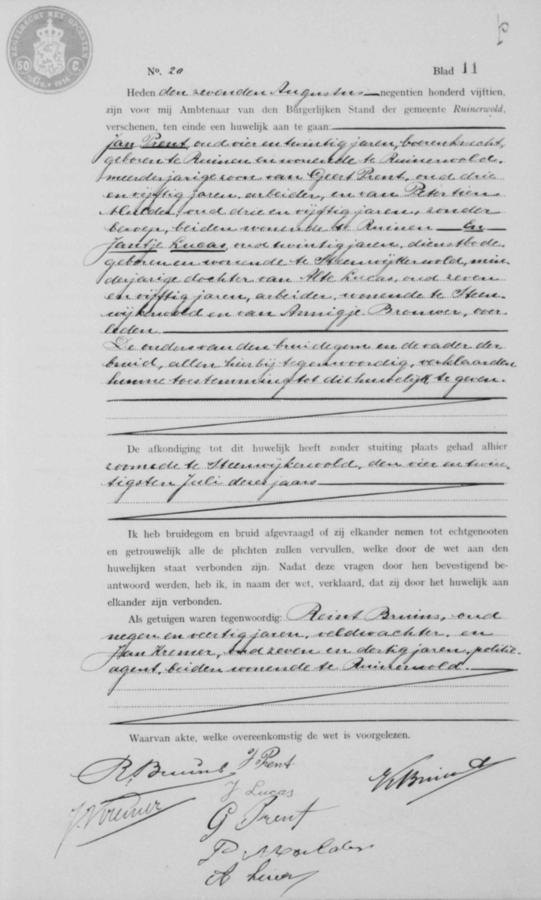 50 C.
No. 20 Blad 11
Heden den zevenden Augustus negentien honderd vijftien,
zijn voor mij Ambtenaar van den Burgerlijken Stand der gemeente Ruinerwold,
verschenen, ten einde een huwelijk aan te gaan:
Jan Prent, oud vier en twintig jaren, boerenknecht,
geboren te Ruinen en wonende te Ruinerwold,
meerderjarige zoon van Geert Prent, oud drie
en vijftig jaren, arbeider, en van Petertien
Mulder, oud drie en vijftig jaren, zonder
beroep, beiden wonende te Ruinen en
Jantje Lucas, oud twintig jaren, dienstbode,
geboren en wonende te Steenwijkerwold, min-
derjarige dochter van Alte Lucas, oud zeven
en vijftig jaren, arbeider, wonende te Steen-
wijkerwold en van Annigje Brouwer, over-
leden.
De ouders van den bruidegom en de vader der
bruid, allen hierbij tegenwoordig, verklaarden
hunne toestemming tot dit huwelijk te geven.
De afkondiging tot dit huwelijk heeft zonder stuiting plaats gehad alhier
zoomede te Steenwijkerwold, den vier en twin-
tigsten Juli dezes jaars
Ik heb bruidegom en bruid afgevraagd of zij elkander nemen tot echtgenooten
en getrouwelijk alle de plichten zullen vervullen, welke door de wet aan den
huwelijken staat verbonden zijn. Nadat deze vragen door hen bevestigend be-
antwoord werden, heb ik, in naam der wet, verklaard, dat zij door het huwelijk aan
elkander zijn verbonden.
Als getuigen waren tegenwoordig: Reint Bruins, oud
negen en veertig jaren, veldwachter, en
Jan Kremer, oud zeven en dertig jaren, politie-
agent, beiden wonende te Ruinerwold.
Waarvan akte, welke overeenkomstig de wet is voorgelezen.
R. Bruins J Prent
J Kremer J Lucas
G Prent
P Mulder
A Lucas